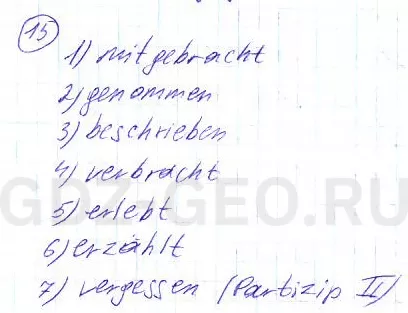 15
1) mitgebracht
2) genommen
3) beschrieben
4) verbracht
GDZ-GEO.RU
5) erlebt
6) erzählt
7) vergessen (Partizip II)